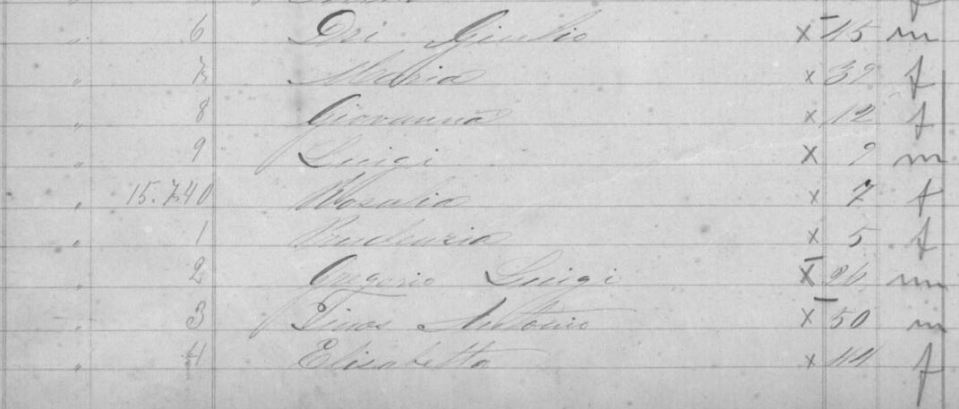 " 6 Dri Giulio x 45 m
" 7 Maria x 39 f
" 8 Giovanna x 12 f
" 9 Luigi x 9 m
" 15.740 Rosalia x 7 f
" 1 x 5 f
" 2 Gregorio Luigi x 26 m
" 3 Antonio x 50 m
" 4 Elisabetta x f